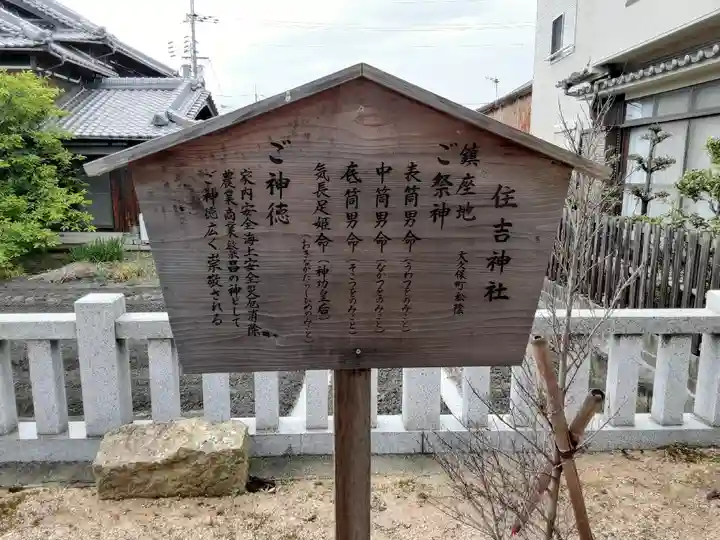 住吉神社
鎮座地 大久保町松陰
ご祭神
表筒男命(うわつをのみこと)
中筒男命(なかつをのみこと)
底筒男命(そこつをのみこと)
気長足姫命(神功皇后)
(おきながたらしひめのみこと)
ご神徳
家内安全海上安全災厄消除
農業商業繁昌の神として
ご神徳広く崇敬される